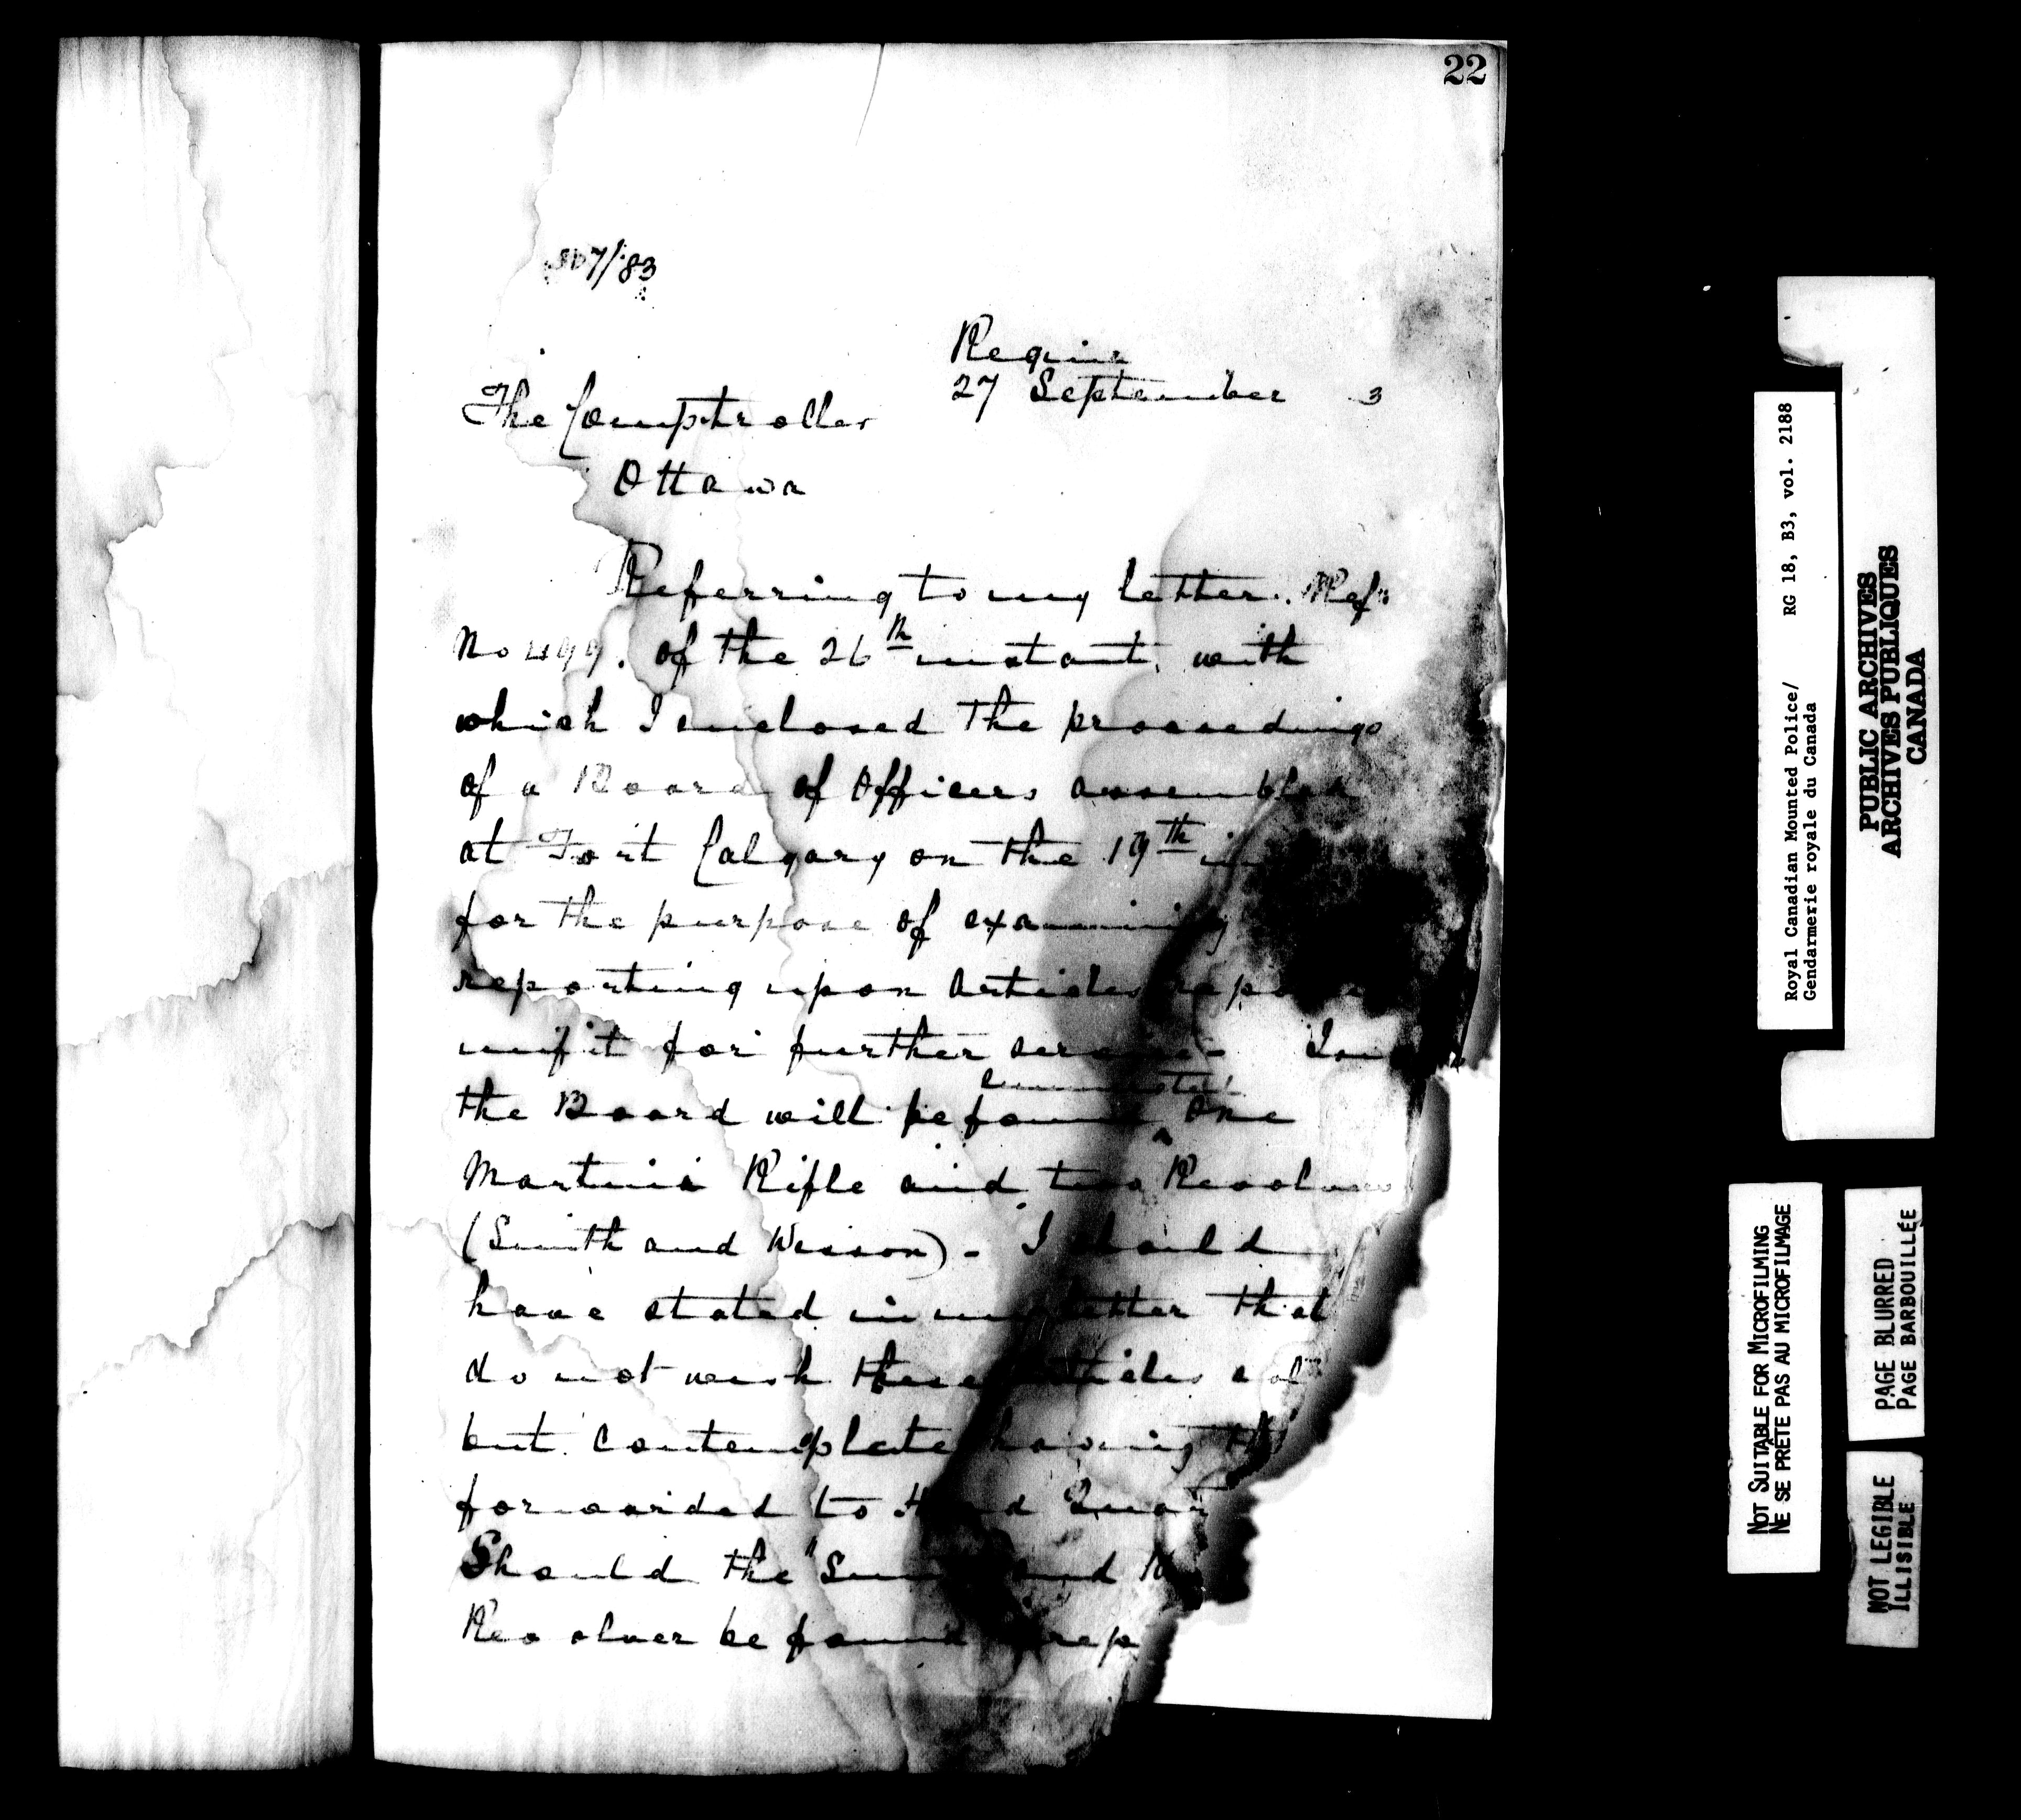 22
507/83
Regina
27 September 3
The Comptroller
Ottawa
Referring to my letter. Ref:
No 499. of the 26th instant, with
which I enclosed the proceedings
of a Board of Officers assembled
at Fort Calgary on the 19th
for the purpose of examining
reporting upon articles
unfit for further service -
the Board will be found One
Martini Rifle and two Revolvers
(Smith and Wesson) - I should
have stated in my letter that
do not wish these articles
but contemplate having
forwarded to Head
Should the "Smith and
Revolver be found
Royal Canadian Mounted Police/ RG 18, B3, vol. 2188
Gendarmerie royale du Canada
PUBLIC ARCHIVES
ARCHIVES PUBLIQUES
CANADA
NOT SUITABLE FOR MICROFILMING
NE SE PRETE PAS AU MICROFILMAGE
PAGE BLURRED
PAGE BARBOUILLÉE
NOT LEGIBLE
ILLISIBLE